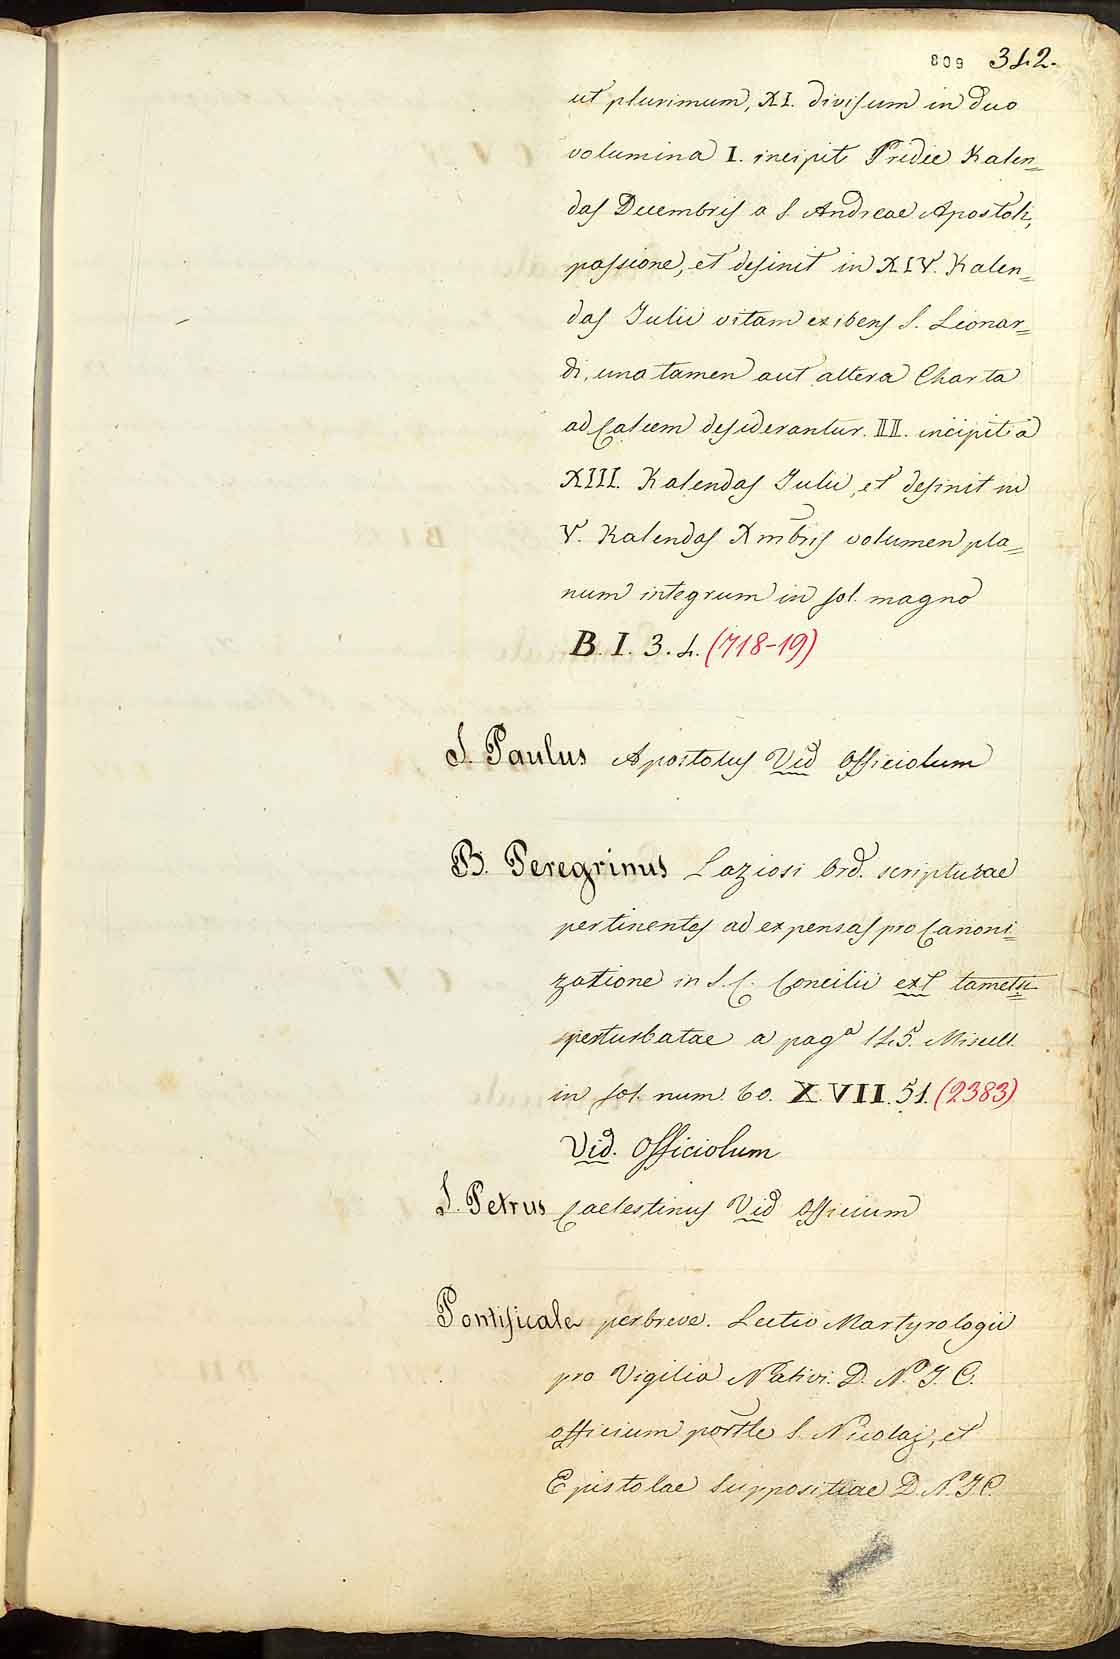 809 342.
ut plurimum, XI. divisum in duo
volumina I. incipit Pridie Kalen=
das Decembris a S. Andreae Apostoli,
passione, et desinit in XIV. Kalen=
das Julii vitam exibens S. Leonar=
di, una tamen aut altera Charta
ad Calcem desiderantur. II. incipit a
XIII. Kalendas Julii, et desinit in
V. Kalendas Xmbris volumen pla=
num integrum in fol. magno
B. I. 3. 4. (718-19)
S. Paulus Apostolus Vid Officiolum
B. Peregrinus Laziosi Ord. scripturae
pertinentes ad expensas pro Canoni=
zatione in S. C. Concilii ext tametsi
perturbatae a pagª 145. Miscell.
in fol. num. 60. X. VII. 51. (2383)
Vid. Officiolum
S. Petrus Caelestinus Vid Officium
Pontificale perbreve. Lectio Martyrologii
pro Vigilia Nativi. D. N. J. C.
officium portle S. Nicolaj, et
Epistolae suppositiae D. N. J. C.